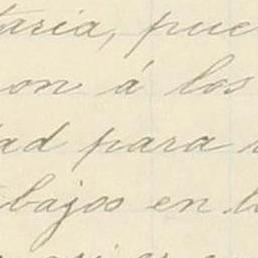 taria, pue
on á los
ad para
abajos en l